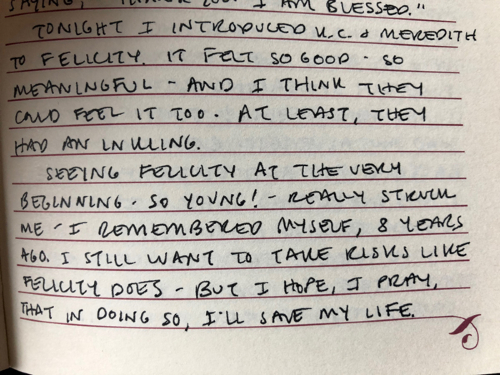 SAYING, "THANK YOU. I AM BLESSED."
TONIGHT I INTRODUCED K.C. & MEREDITH
TO FELICITY. IT FELT SO GOOD - SO
MEANINGFUL - AND I THINK THEY
COULD FEEL IT TOO. AT LEAST, THEY
HAD AN INKLING.
SEEING FELICITY AT THE VERY
BEGINNING - SO YOUNG! - REALLY STRUCK
ME - I REMEMBERED MYSELF, 8 YEARS
AGO. I STILL WANT TO TAKE RISKS LIKE
FELICITY DOES - BUT I HOPE, I PRAY,
THAT IN DOING SO, I'LL SAVE MY LIFE.